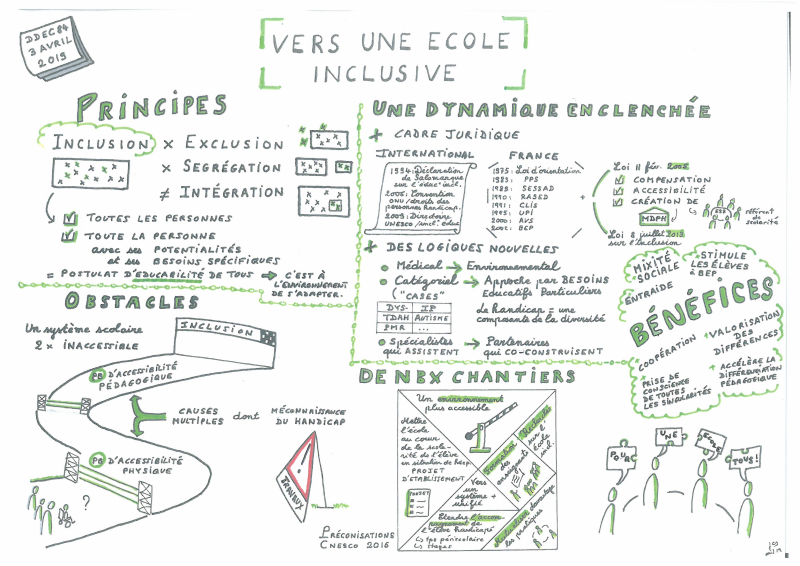 DDEC84
3 AVRIL
2019
VERS UNE ECOLE
INCLUSIVE
PRINCIPES
INCLUSION × EXCLUSION
× SEGRÉGATION
≠ INTÉGRATION
TOUTES LES PERSONNES
TOUTE LA PERSONNE
avec ses POTENTIALITÉS
et ses BESOINS SPÉCIFIQUES
= POSTULAT D'EDUCABILITÉ DE TOUS → C'EST À
L'ENVIRONNEMENT
DE S'ADAPTER.
OBSTACLES
Un système scolaire
2 × INACCESSIBLE
INCLUSION
PB D'ACCESSIBILITÉ
PÉDAGOGIQUE
CAUSES
MULTIPLES dont MÉCONNAISSANCE
DU HANDICAP
PB D'ACCESSIBILITÉ
PHYSIQUE
?
TRAVAUX
PRÉCONISATIONS
CNESCO 2016
UNE DYNAMIQUE ENCLENCHÉE
+ CADRE JURIDIQUE
INTERNATIONAL
1994: Déclaration
de Salamanque
sur l'éduc° incl.
2006: Convention
ONU/droits des
personnes handicap.
2009: Directoire
UNESCO/incl. educ
FRANCE
1975: Loi d'orientation
1983: PPS
1988: SESSAD
1990: RASED
1991: CLIS
1995: UPI
2000: AVS
2002: BEP
+
Loi 11 fév. 2005
COMPENSATION
ACCESSIBILITÉ
CRÉATION DE
MDPH
ESS
référent de
scolarité
Loi 8 juillet 2013
sur l'inclusion
+ DES LOGIQUES NOUVELLES
Médical → Environnemental
Catégoriel → Approche par BESOINS
("CASES" Educatifs Particuliers
DYS- IP
TDAH AUTISME
PMR ...
Le Handicap = une
composante de la diversité
Spécialistes → Partenaires
qui ASSISTENT qui CO-CONSTRUISENT
BÉNÉFICES
MIXITÉ
SOCIALE
STIMULE
LES ÉLÈVES
à BEP
ENTRAIDE
COOPÉRATION
VALORISATION
DES
DIFFÉRENCES
PRISE DE
CONSCIENCE
DE TOUTES
LES SINGULARITÉS
ACCÉLÈRE LA
DIFFÉRENCIATION
PÉDAGOGIQUE
DE NBX CHANTIERS
Un environnement
plus accessible
Mettre
l'école
au cœur
de la scola-
rité de l'élève
en situation de Hcap.
PROJET
D'ETABLISSEMENT
PROJET
Formation
des
enseignants
Recherche
sur l'
école
incl.
Vers
un
système +
unifié
Etendre l'accom-
pagnement de
l'élève handicapé
↳ tps périscolaire
↳ stages
Mutualiser davantage
les pratiques
POUR
UNE
ECOLE
TOUS!